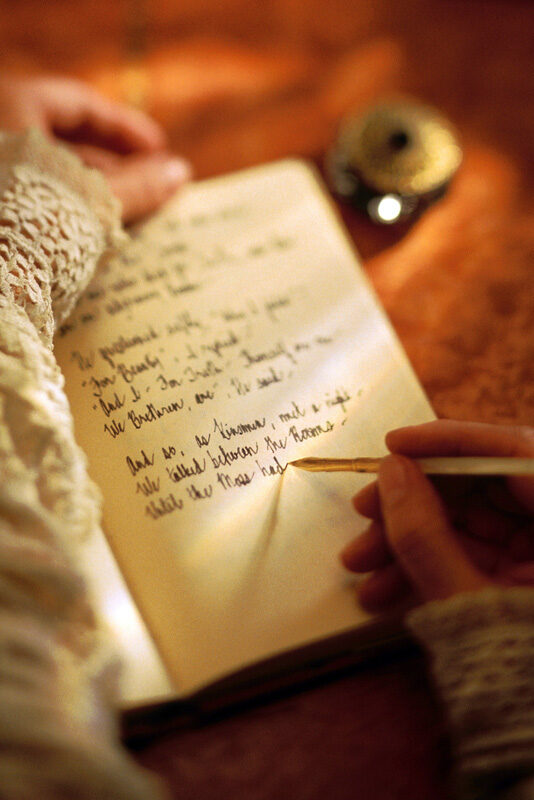 an adjoining Room
He questioned softly, "Why I
"For Beauty", I replied
"And I - For Truth - Themself are one
We Brethren, are", He said -
And so, as Kinsmen, met a night -
We talked between the Rooms -
Until the Moss had